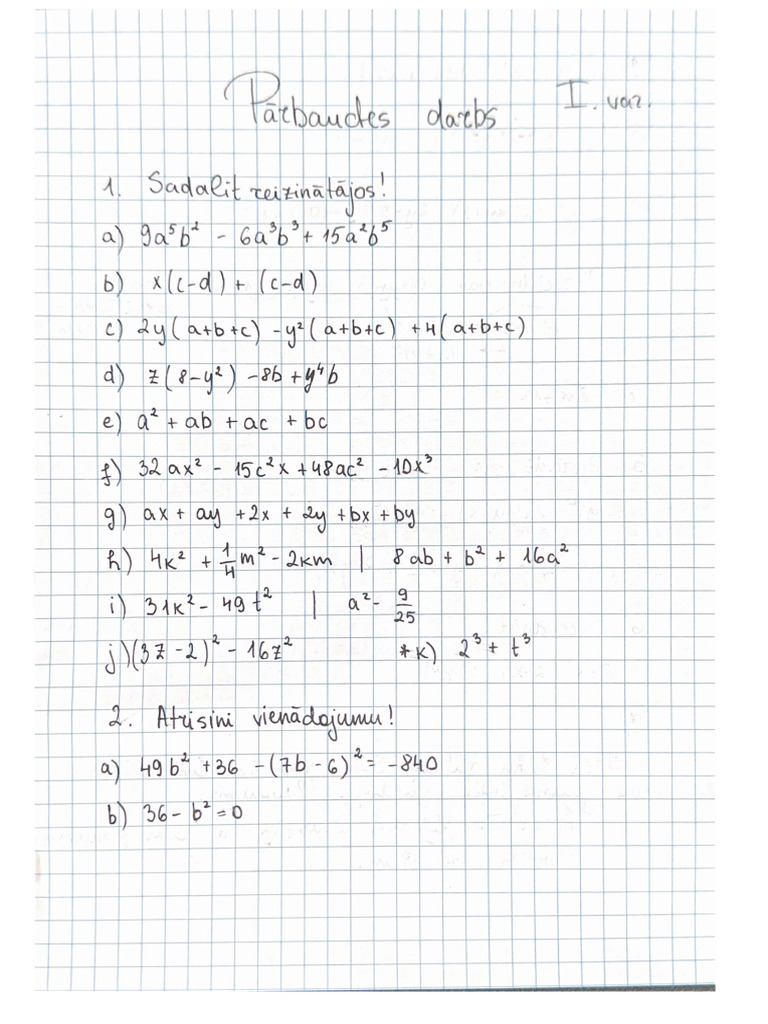 Pārbaudes darbs I. var.
1. Sadalit reizinātājos!
a) 9a⁵b² - 6a³b³ + 15a²b⁵
b) x(c-d) + (c-d)
c) 2y(a+b+c) - y²(a+b+c) + 4(a+b+c)
d) z(8-y²) - 8b + y⁴b
e) a² + ab + ac + bc
f) 32ax² - 15c²x + 48ac² - 10x³
g) ax + ay + 2x + 2y + bx + by
h) 4k² + 1/4 m² - 2km | 8ab + b² + 16a²
i) 31k² - 49t² | a² - 9/25
j) (3z-2)² - 16z² *k) 2³ + t³
2. Atrisini vienādojumu!
a) 49b² + 36 - (7b-6)² = -840
b) 36 - b² = 0